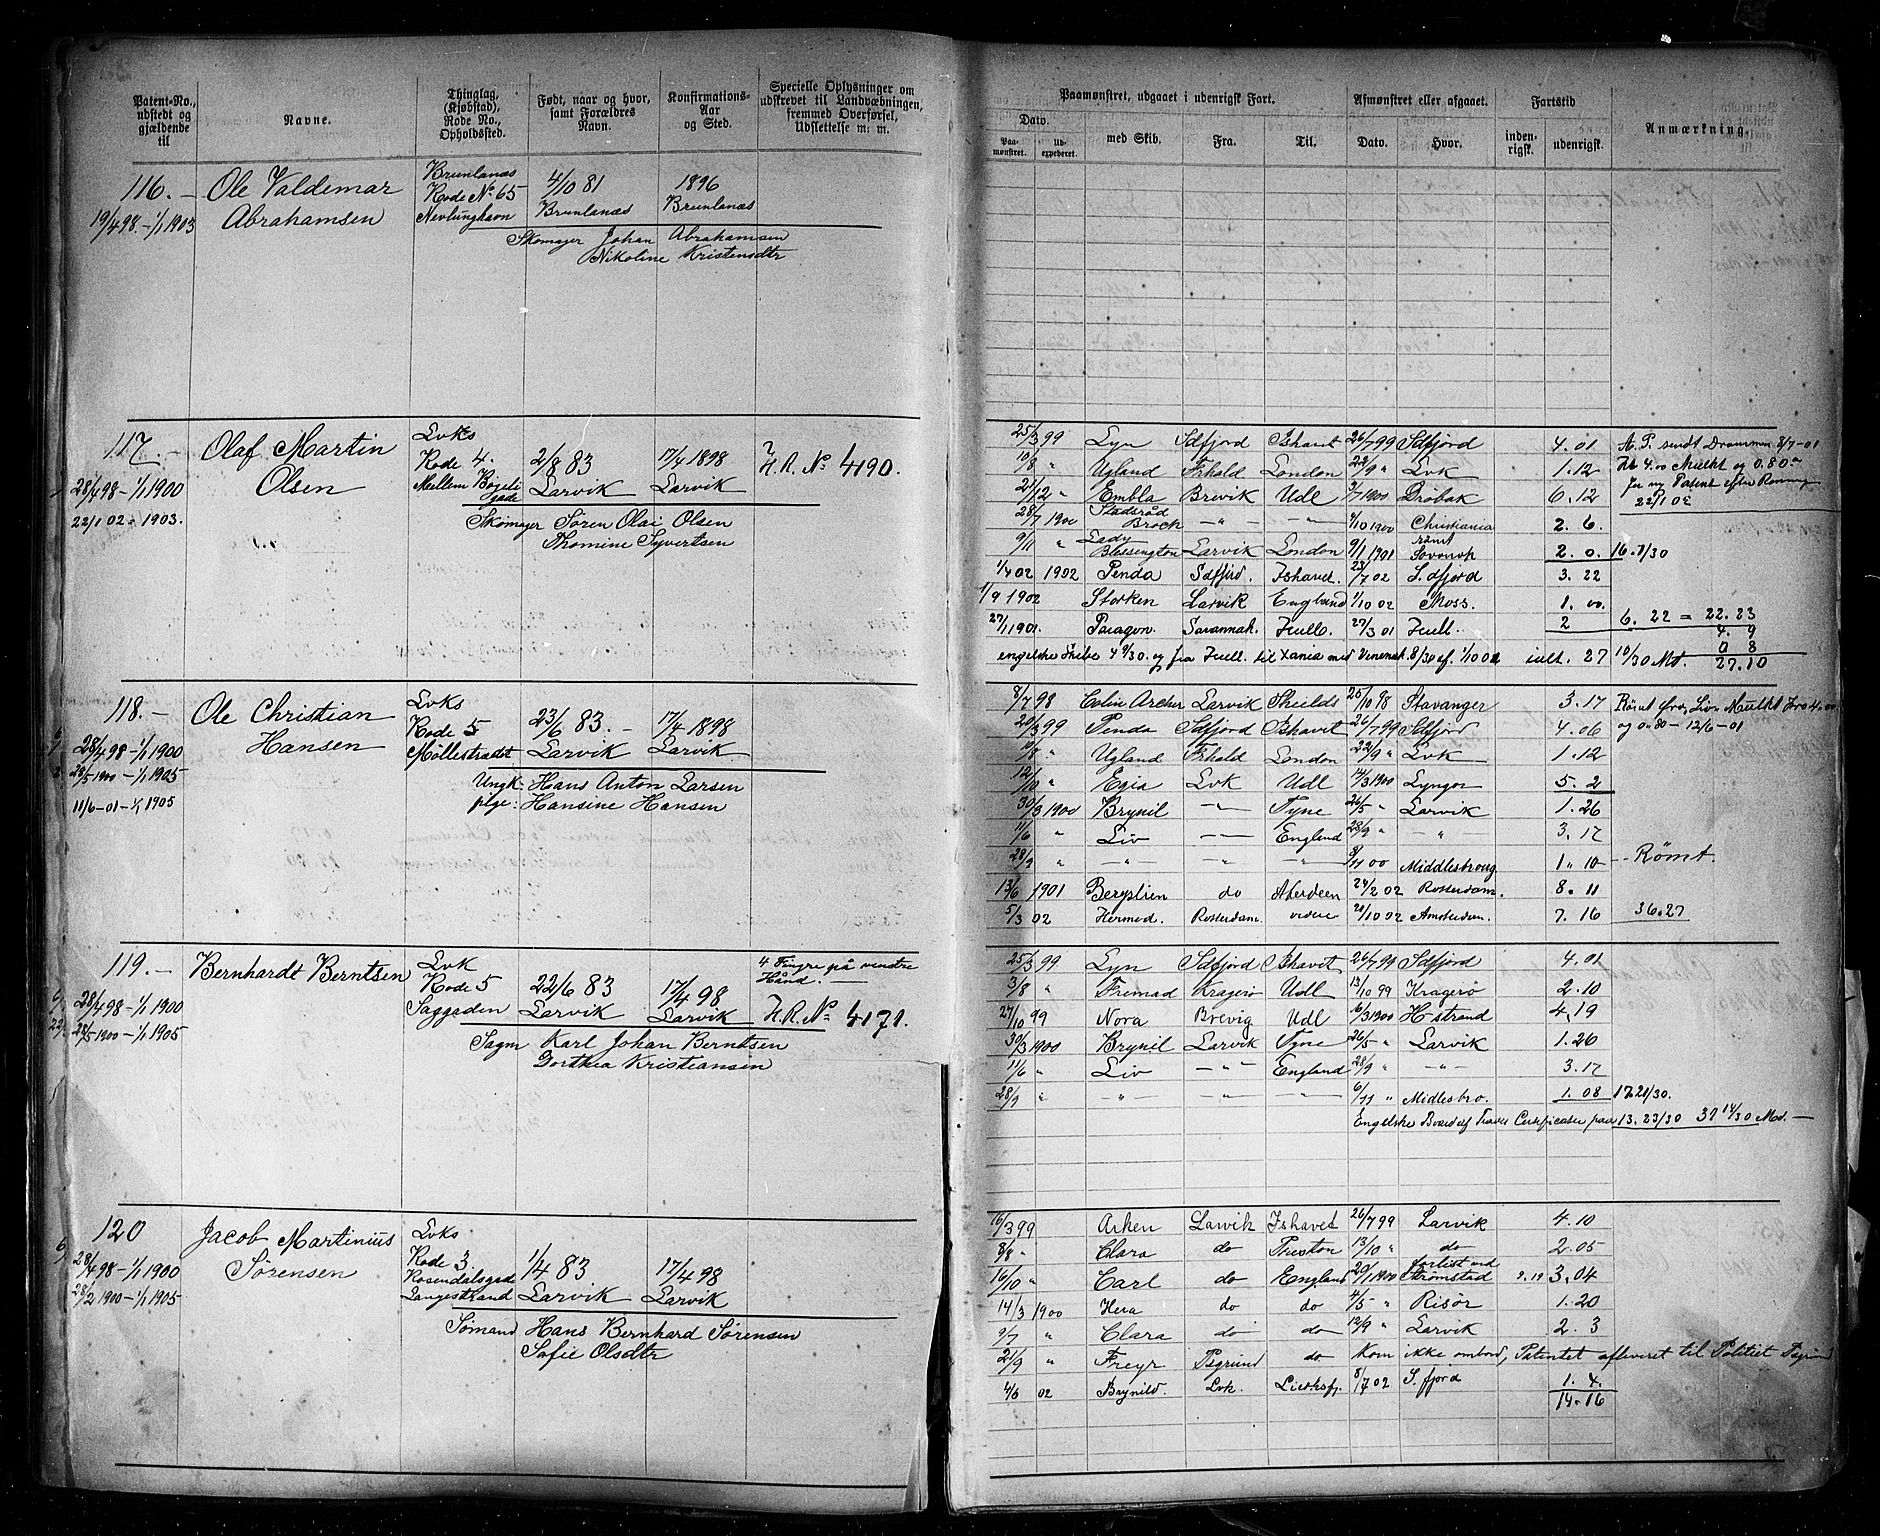 Patent-No., udstedt og gjældende til
Navne.
Thinglag, (Kjøbstad), Rode No., Opholdssted.
Født, naar og hvor, samt Forældres Navn.
Konfirmations-Aar og Sted.
Specielle Oplysninger om udskrevet til Landvæbningen, fremmed Overførsel, Udslettelse m. m.
Paamønstret, udgaaet i udenrigsk Fart.
Afmønstret eller afgaaet.
Fartstid
Anmærkning.
Dato.
Paa-mønstret.
Ud-expederet.
med Skib.
Fra.
Til.
Dato.
Hvor.
inden-rigsk.
udenrigsk.
116. — Ole Valdemar Brunlanæs 4/10 81 1896
19/4 98. - 1/1 1903 Abrahamsen Rode No 65 Brunlanæs Brunlanæs
Nevlunghavn
Skomager Johan Abrahamsen
Nikoline Kristensdtr
117. — Olaf Martin Lvks
28/4 98 - 1/1 1900 Olsen Rode 4. 2/8 83 17/4 1898 H.R. No 4190.
Mellem Larvik Larvik
gade
22/1 02 - 1903.
Skomager Søren Olai Olsen
Thomine Syvertsen
25/3 99 Lyn Sdfjord Ishavet 26/7 99 Sdfjord 4. 01 A. P. sendt Drammen 8/7 - 01
10/8 " Ugland Frhald London 22/9 " Lvk 1. 12 4.00 Mulkt og 0.80
21/12 " Embla Brevik Udl 3/7 1900 Drøbak 6. 12 ny Patent efter Rømning
28/7 1900 Stadsråd Brock — " — — " — 4/10 1900 Christiania 2. 6. 22/1 02
9/11 " Lady Blessington Larvik London 9/1 1901 rømt 2. 0. 16. 1/30
1/4 02 1902 Penda Sdfjord. Ishavet. 23/7 02 S.dfjord 3. 22
1/9 1902 Storken Larvik England 1/10 02 Moss. 1. 00.
27/1 1901. Paragon. Savannah. Hull. 27/3 01 Hull. 2 6. 22 = 22. 23
4. 9
0 8
engelske Skibe 4 9/30. og fra Hull. til Xania med 8/30 af. 1/10 02 ialt. 27 10/30 Md. 27.10
118. — Ole Christian Lvks
28/4 98 - 1/1 1900 Hansen Rode 5 23/6 83. — 17/4 1898
28/5 1900 - 1/1 1905 Møllestrædet Larvik Larvik
11/6 - 01 - 1/1 1905
Ungk: Hans Anton Larsen
pige: Hansine Hansen
8/7 98 Colin Archer Larvik Shields 25/10 98 Stavanger 3. 17 Rømt fra Liv. Mulkt Kro 4.00
20/3 99 Penda Sdfjord Ishavet 26/7 99 Sdfjord 4. 06 og 0.80 - 12/6 - 01
10/8 " Ugland Frhald London 22/9 " Lvk 1. 12
12/10 " Egia Lvk Udl 14/3 1900 Lyngør 5. 2
30/3 1900 Brynil — " — Tyne 26/5 " Larvik 1. 26
11/6 " Liv — " — England 28/9 " — " 3. 17
28/9 " — " — — " — — " — 8/11 00 Middlesbroug 1 " 10 — Rømt.
13/6 1901 do Aberdeen 24/2 02 Rotterdam. 8. 11
5/3 02 Hermod. Rotterdam. videre 20/10 02 Amsterdam. 7. 16 36.27
119. — Bernhardt Berntsen Lvk 4 Fingre på venstre
28/4 98 - 1/1 1900 Rode 5 22/6 83 17/4 98 Hånd. —
28/5 1900 - 1/1 1905 Saggaden Larvik Larvik H.R. No 4171.
Sagm Karl Johan Berntsen
Dorthea Kristiansen
25/3 99 Lyn Sdfjord Ishavet 26/7 99 Sdfjord 4. 01
3/8 " Fremad Kragerø Udl 13/10 99 Kragerø 2. 10
27/10 99 Nora Brevig Udl 16/3 1900 H-strand 4. 19
30/3 1900 Brynil Larvik Tyne 26/5 " Larvik 1. 26
11/6 " Liv — " — England 28/9 " — " — 3. 17
28/9 " — " — — " — — " — 6/11 " Midlesbro. 1. 08 17. 21/30.
Engelske Board of Trade Certificater 13. 23/30 31 14/30 Md. —
120 Jacob Martinius Lvks
28/4 98 - 1/1 1900 Sørensen Rode 3. 1/4 83 17/4 98
28/2 1900 - 1/1 1905 Rosendalsgade Larvik Larvik
Langestrand
Sømand Hans Bernhard Sørensen
Sofie Olsdtr
16/3 99 Arken Larvik Ishavet 26/7 99 Larvik 4. 10
8/8 " Clara do Preston 13/10 " do 2. 05
16/10 " Carl do England 20/1 1900 forlist ved Strømstad 2. 19 3. 04
14/3 1900 Hera do do 4/5 " Risør 1. 20
9/7 " Clara do do 12/9 " Larvik 2. 3
21/9 " Freyr Psgrund do Kom ikke ombord, Patentet afleveret til Politiet Psgrund
4/6 02 Brynild. Lvk. 8/7 02 S. fjord 1. 4.
14. 16